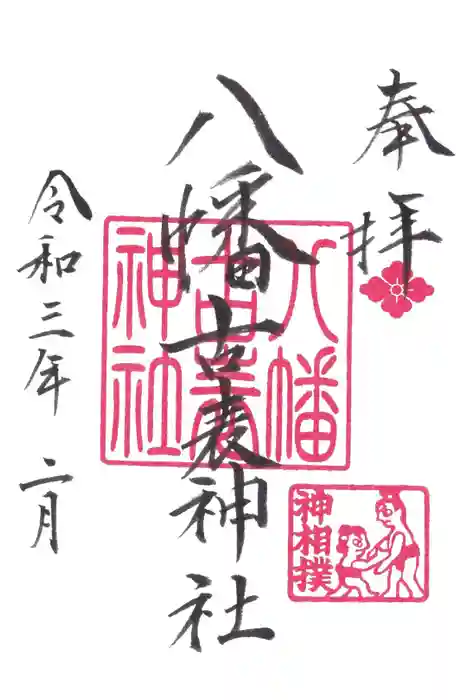 奉拝
八幡古表神社
八幡
古表
神社
神相撲
令和三年 二月